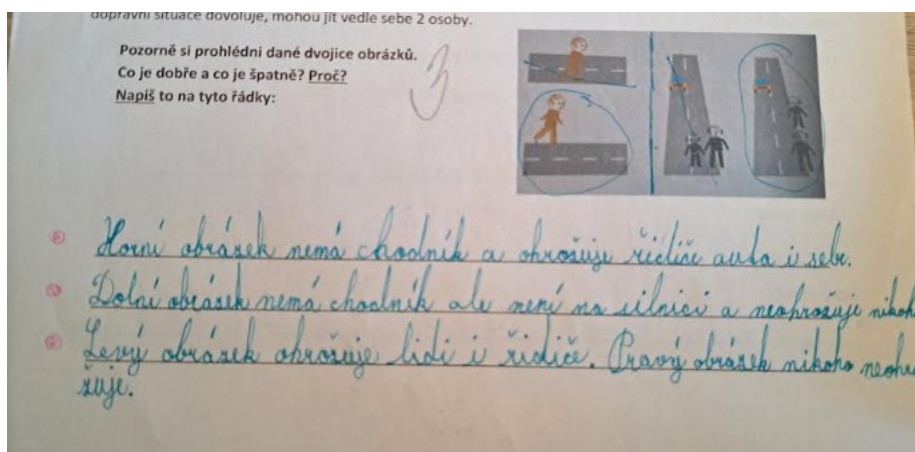 dopravní situace dovoluje, mohou jít vedle sebe 2 osoby.
Pozorně si prohlédni dané dvojice obrázků.
Co je dobře a co je špatně? Proč?
Napiš to na tyto řádky:
3
Horní obrázek nemá chodník a ohrožuje řidiče auta i sebe.
Dolní obrázek nemá chodník ale není na silnici a neohrožuje nikoh
Levý obrázek ohrožuje lidi i řidiče. Pravý obrázek nikoho neohro
žuje.